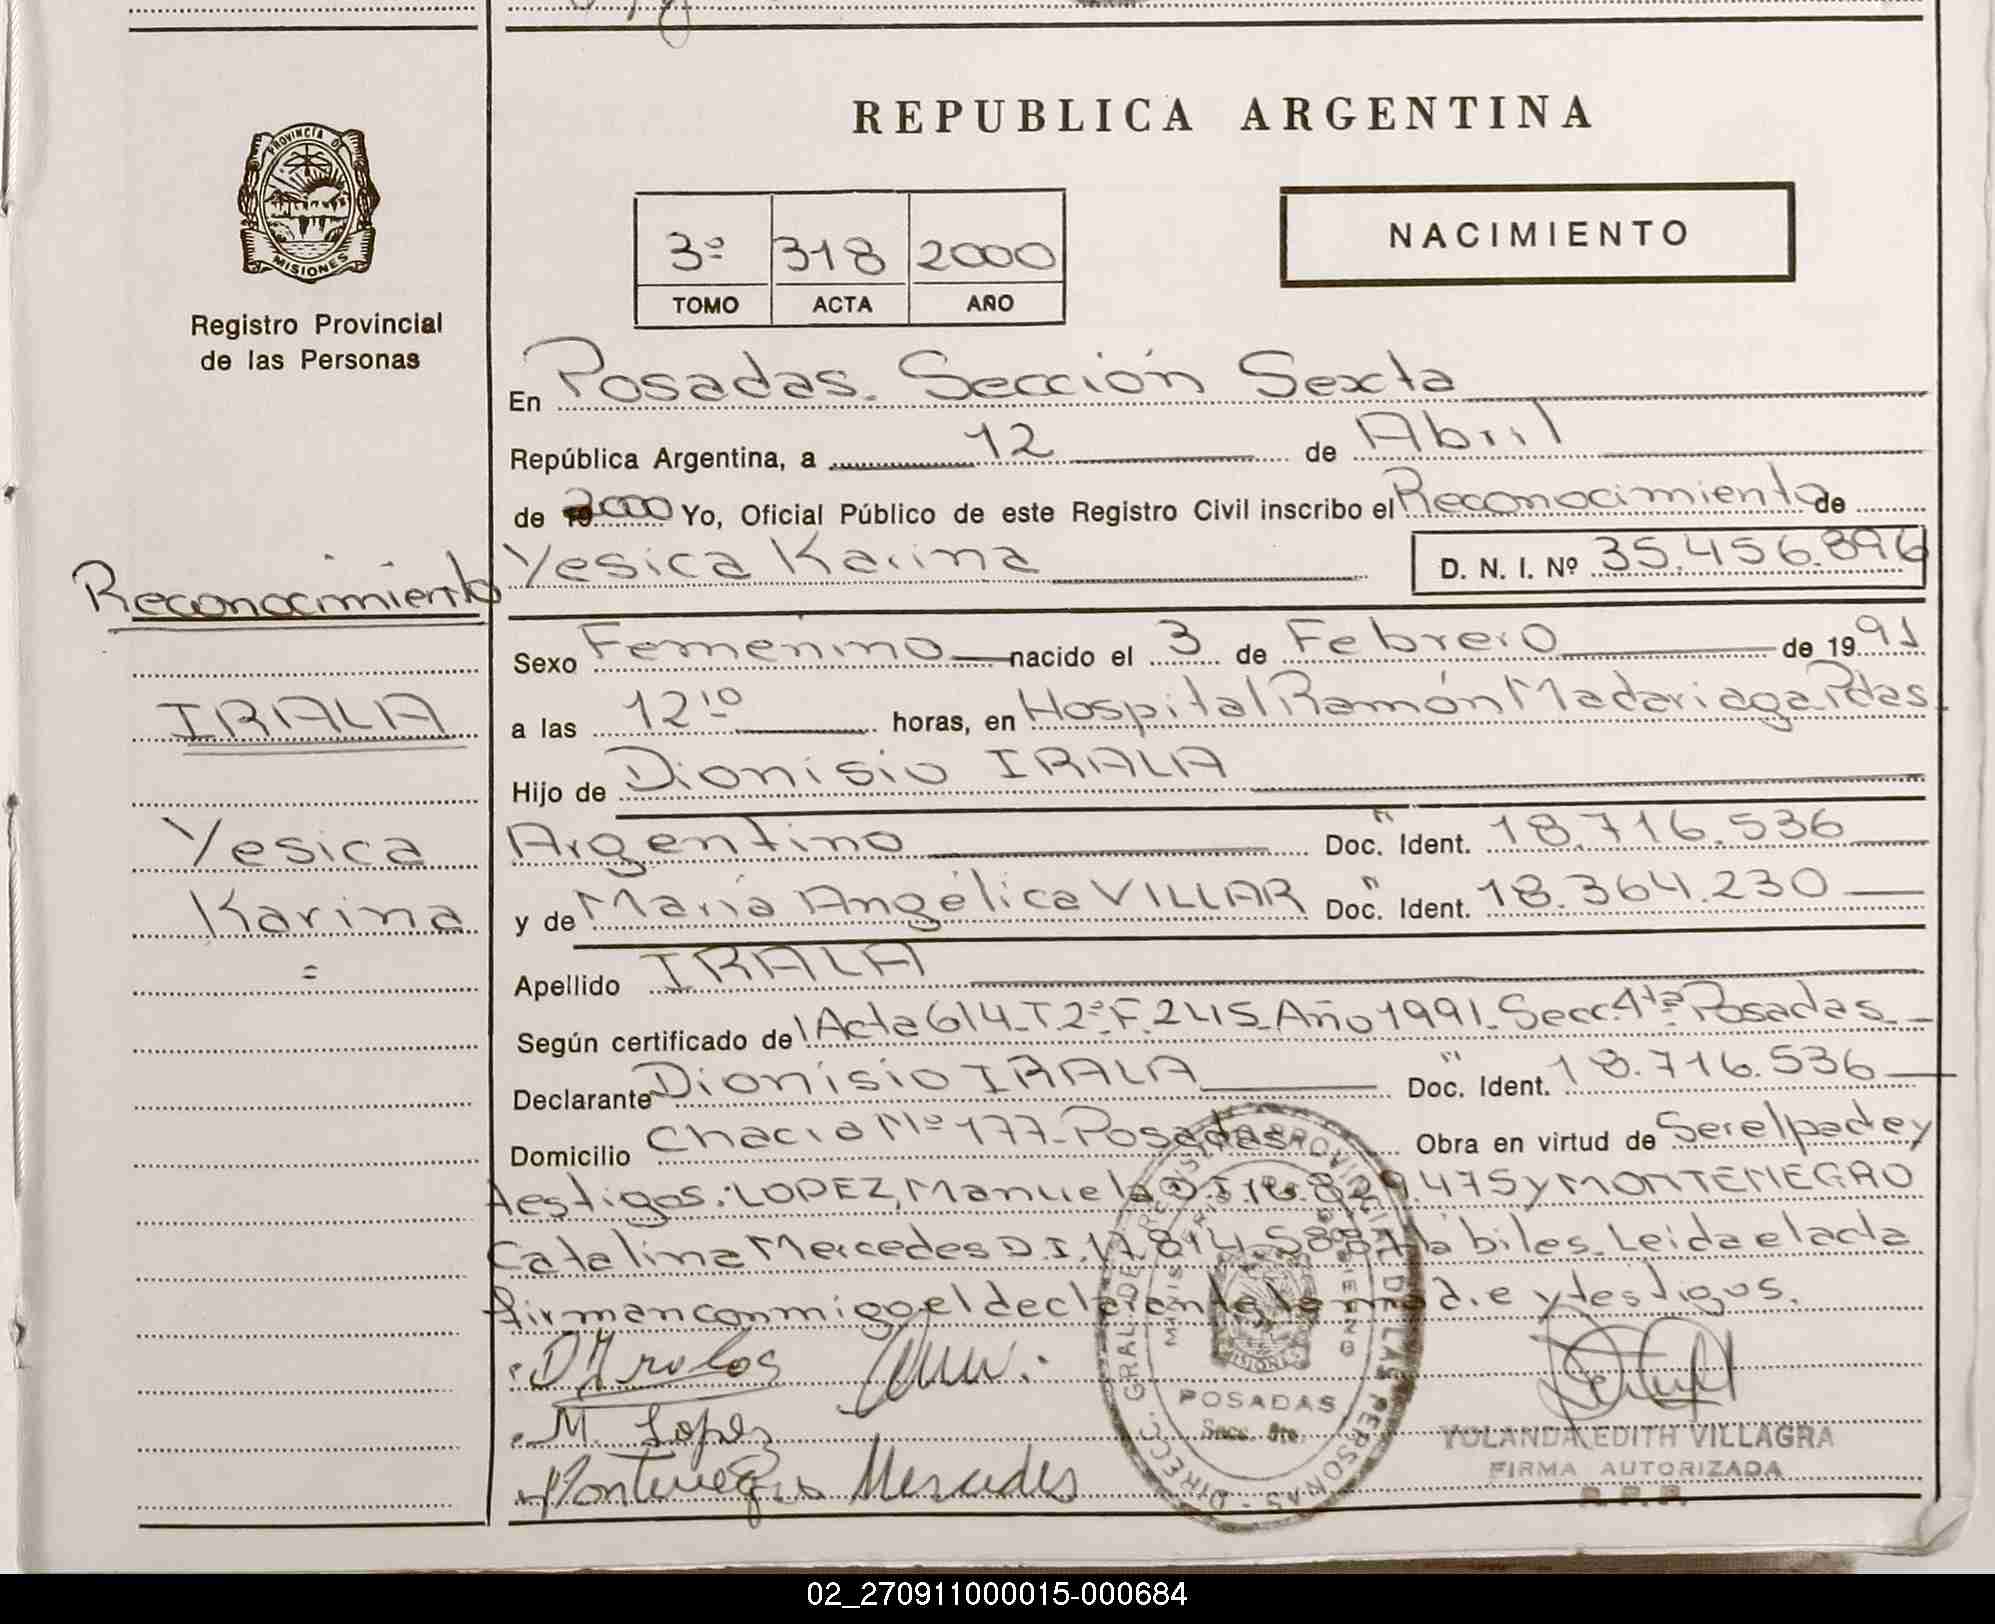 REPUBLICA ARGENTINA
PROVINCIA DE
MISIONES
Registro Provincial
de las Personas
3º 318 2000
TOMO ACTA AÑO
NACIMIENTO
En Posadas. Sección Sexta
República Argentina, a 12 de Abril
de 2000 Yo, Oficial Público de este Registro Civil inscribo el Reconocimiento de
Yesica Karina D. N. I. Nº 35.456.896
Reconocimiento
Sexo Femenino nacido el 3 de Febrero de 1991
IRALA
a las 12¹⁰ horas, en Hospital Ramón Madariaga Pdas.
Hijo de Dionisio IRALA
Yesica
Argentino Doc. Ident. 18.716.536
Karina
y de María Angélica VILLAR Doc. Ident. 18.364.230
=
Apellido IRALA
Según certificado de Acta 614-T2º-F.245-Año 1991-Secc.4ta Posadas
Declarante Dionisio IRALA Doc. Ident. 18.716.536
Domicilio Chacra Nº 177-Posadas Obra en virtud de Ser el padre y
testigos: LOPEZ, Manuela D.I. 16.829.475 y MONTENEGRO
Catalina Mercedes D.I. 17.814.588 Hábiles. Leida el acta
firman conmigo el declarante, la madre y testigos.
M. Lopez
Montenegro Mercedes
DIREC. GRAL. DE REGISTRO PROVINCIAL DE LAS PERSONAS
MISIONES
POSADAS
Secc. 6ta.
YOLANDA EDITH VILLAGRA
FIRMA AUTORIZADA
R. P. P.
02_270911000015-000684